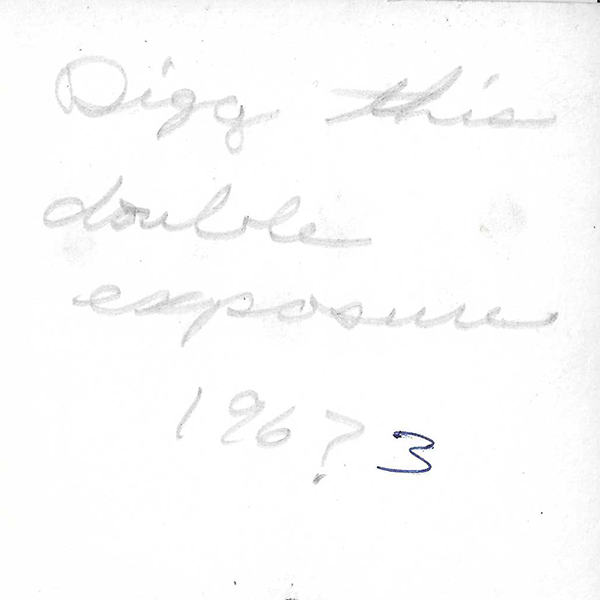 Digg this
double
exposure
196? 3